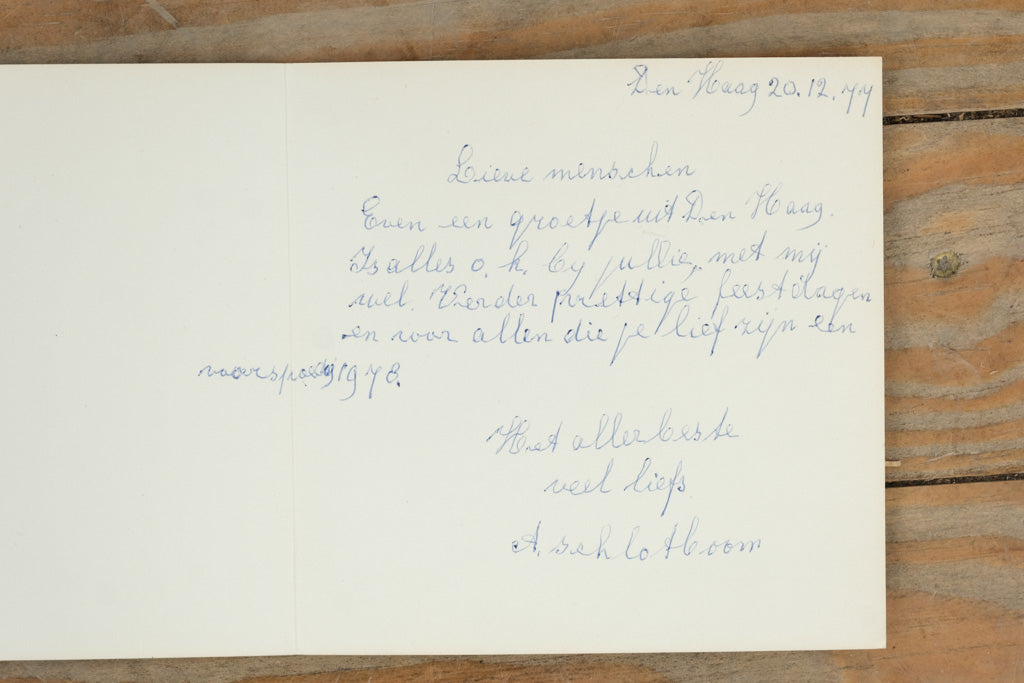 Den Haag 20.12.77
Lieve menschen
Even een groetje uit Den Haag.
Is alles o.k. by jullie, met mij
wel. Verder prettige feestdagen
en voor allen die je lief zijn een
voorspoedig 1978.
Het allerbeste
veel liefs
A. Schlotboom